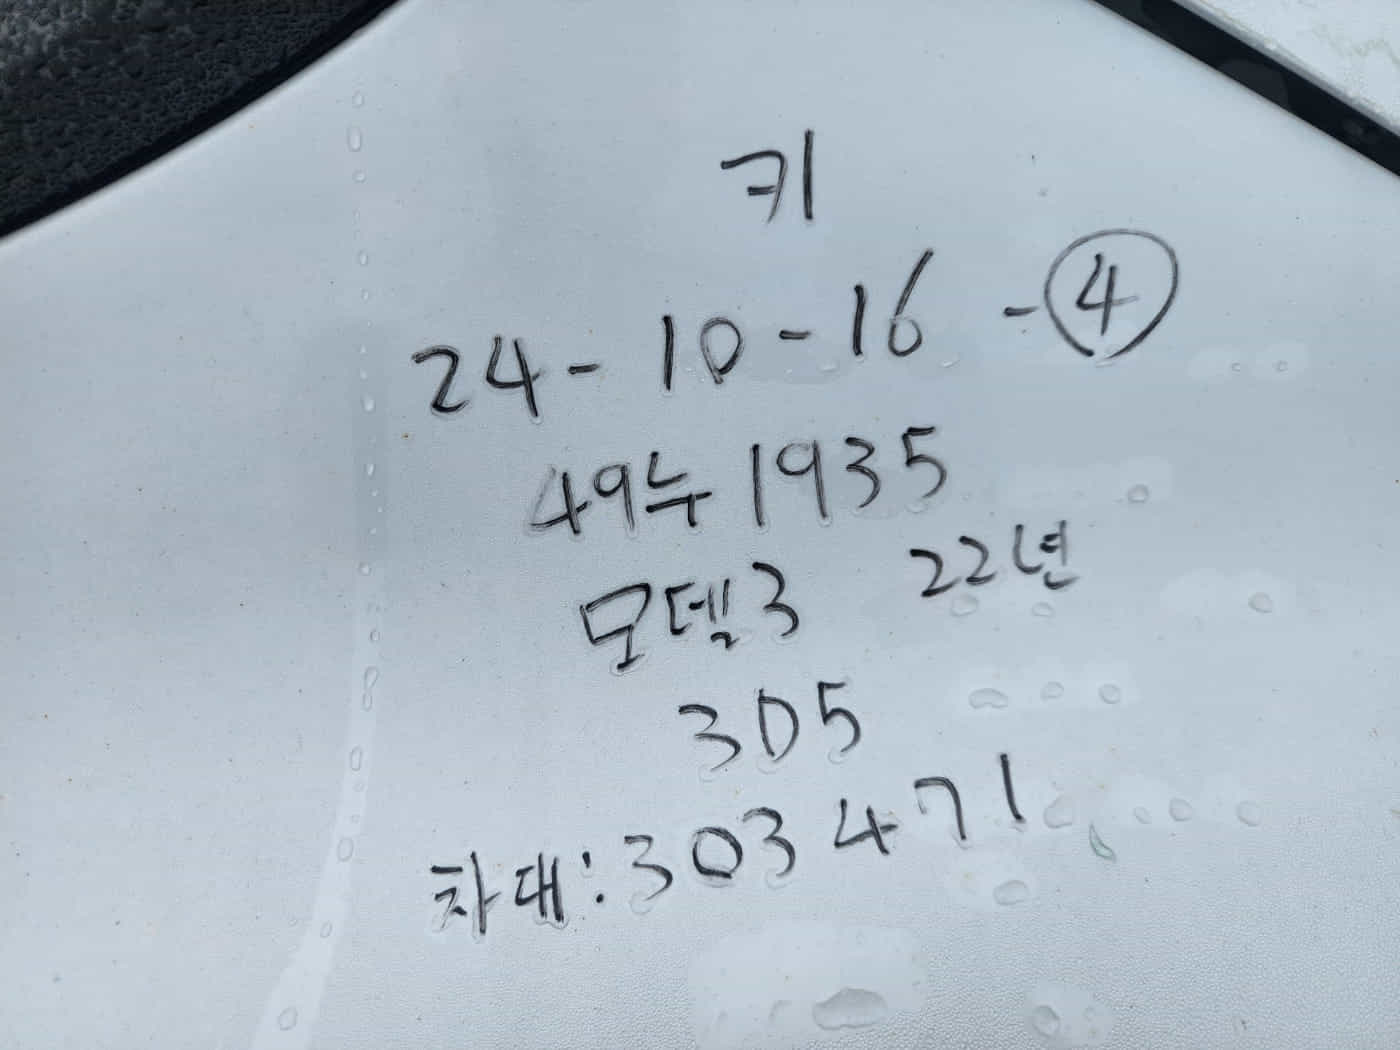 키
24-10-16-④
49누1935
모델3 22년
305
차대:303471